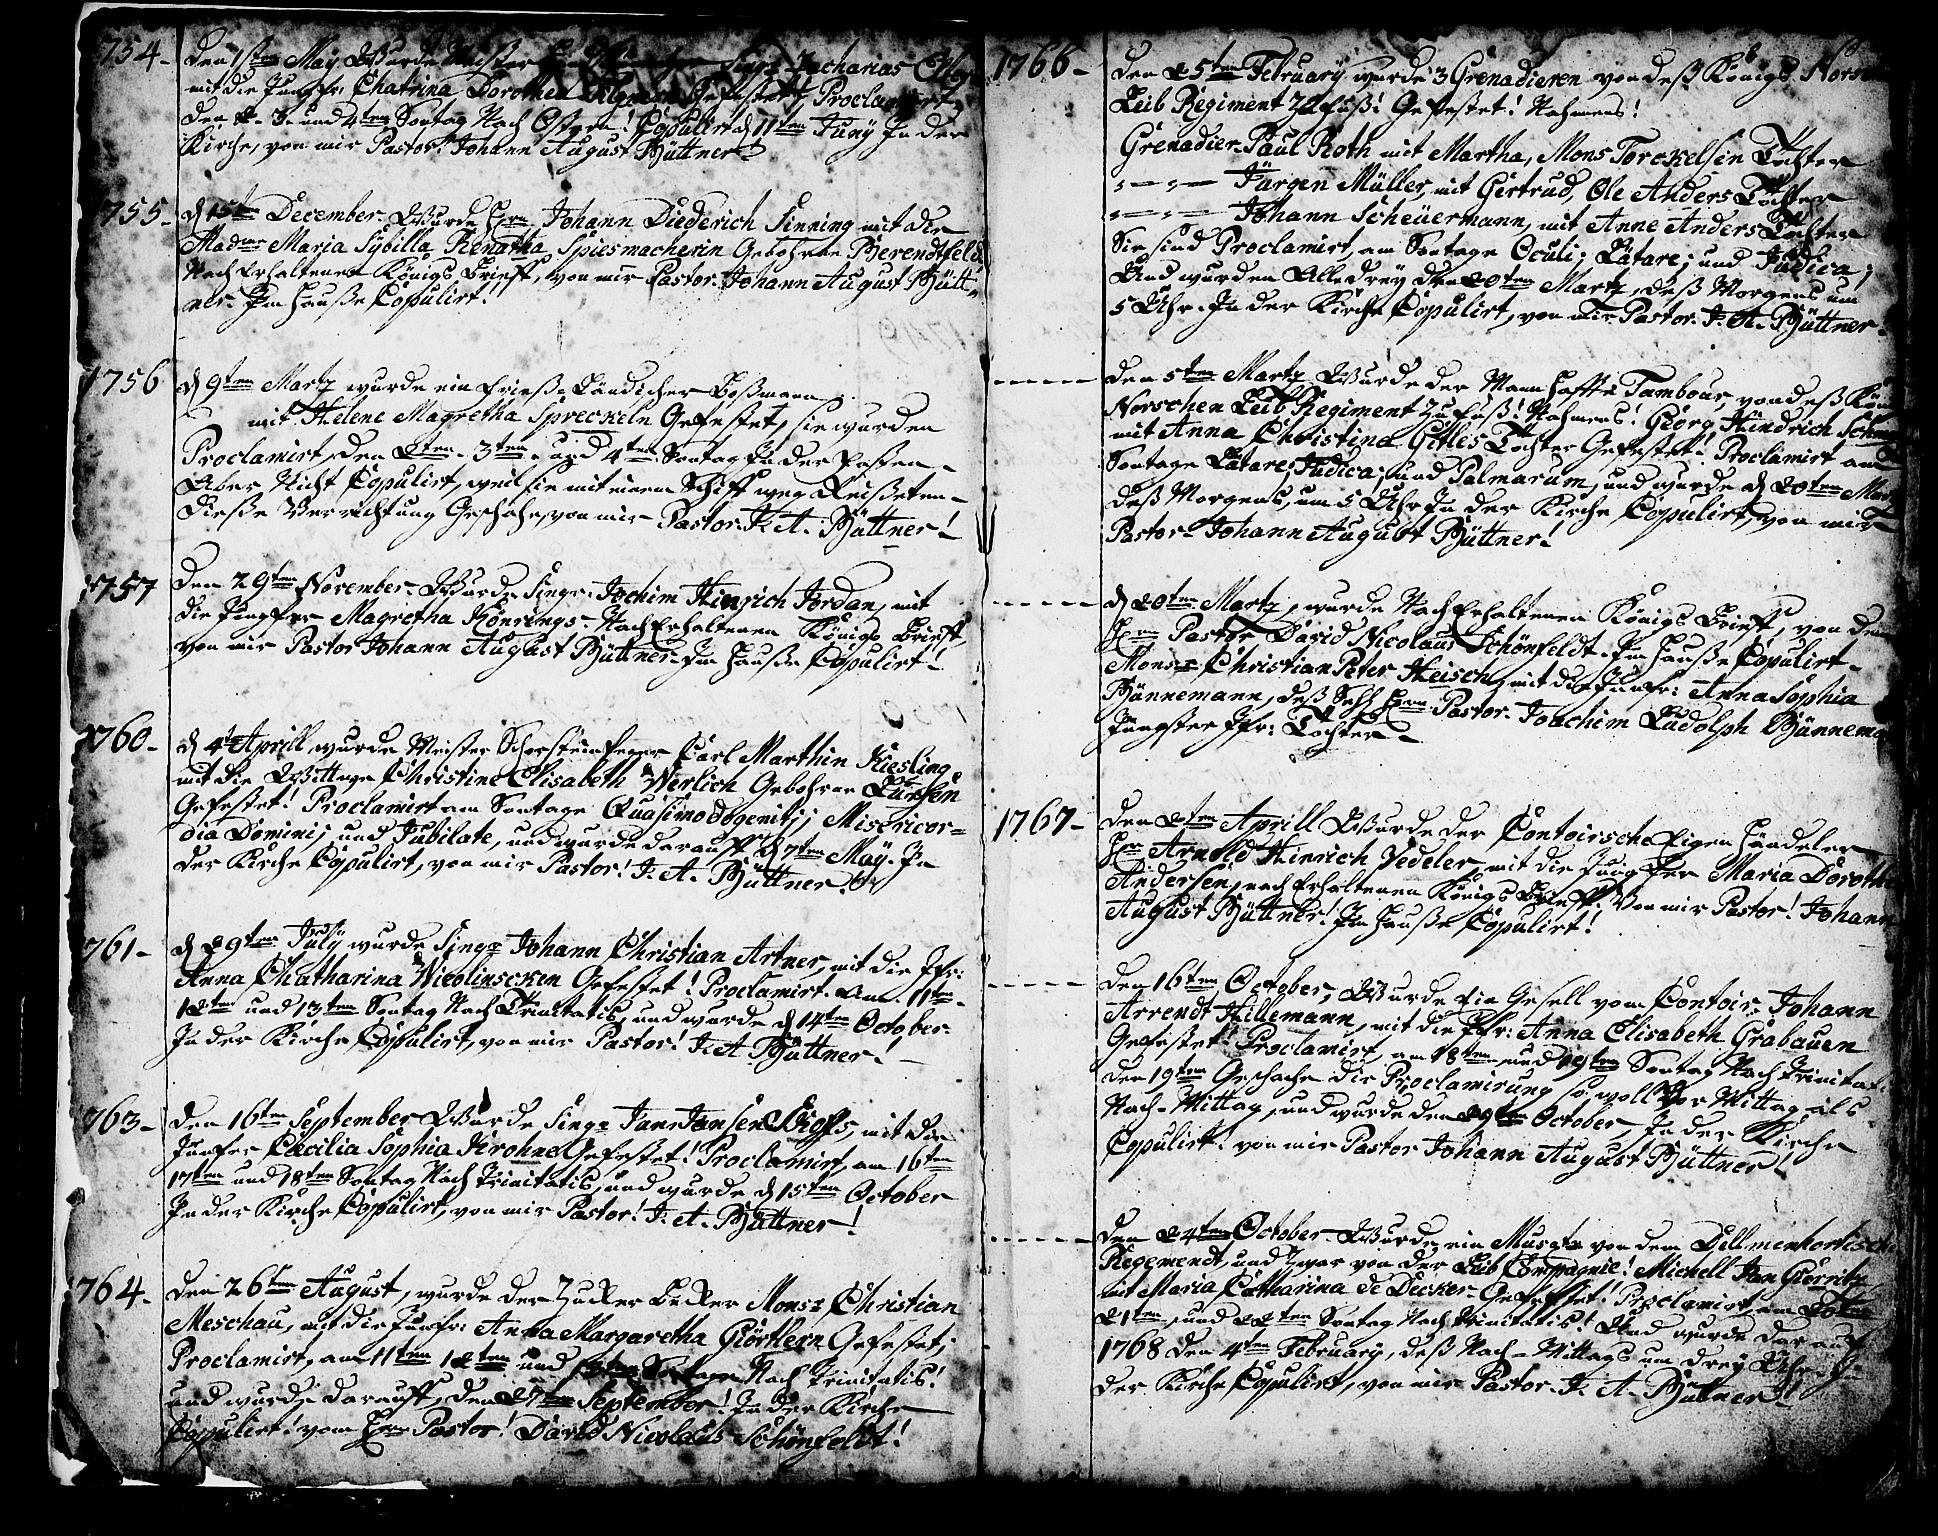 1754-
Den 1sten May Wurde Meister Singr Zacharias
mit die Jungfr: Chatrina Dorothea Gefestet, Proclamirt,
Den 2. 3. und 4ten Sontag Nach Ostern! Copulirt d 11ten Juny In der
Kirche, von mir Pastor! Johann August Büttner
1755-
d 15ten December. Wurde Hrn Johann Diederich Sinning mit die
Madme Maria Sybilla Renatha Spiesmacherin Gebohrne Berendtfeld
Nach Erhaltenen Königs Brieff, von mir Pastor. Johann August Bütt-
ner. Im Hausse Copulirt!
1756
d 9ten Martz wurde ein Friess-Ländischer Boßmann
mit Helene Magretha Spreckeln Gefestet, sie wurden
Proclamirt, den 2ten. 3ten. und 4ten Sontag In der Fasten-
Aber Nicht Copulirt, weil sie mit einem Schiff weg Reißeten-
Dieße Verrichtung Geschahe, von mir Pastor. J. A. Büttner!
1757
Den 29ten November. Wurde Singr. Jochim Hinrich Jordan, mit
die Jungfer Magretha Könrings- Nach Erhaltenen Königs Brieff,
von mir Pastor Johann August Büttner. Im Hauße Copulirt!
1760-
d 4t Aprill wurde Meister Schorsteinfeger Carl Marthin Kiesling
mit die Wittwe Christine Elisabeth Werlich Gebohrne Lürssen
Gefestet! Proclamirt am Sontage Quasimodogeniti; Misericor=
dia Domini; und Jubilate, und wurde darauff d 7ten May. In
der Kirche Copulirt, von mir Pastor! J. A. Büttner!
1761-
d 29ten July wurde Singr Johann Christian Artner, mit die Jfr:
Anna Chatharina Nicolinscken Gefestet! Proclamirt. Am 11ten-
12ten und 13ten Sontag Nach Trinitatis, und wurde d 14ten October
In der Kirche Copulirt, von mir Pastor! J. A Büttner!
1763-
Den 16ten September Wurde Singr Jann Jansen, mit die
Junfer Cæcilia Sophia Krohne Gefestet! Proclamirt, am 16ten
17ten und 18ten Sontag Nach Trinitatis, und wurde d 15ten October
In der Kirche Copulirt, von mir Pastor! J. A. Büttner!
1764-
Den 26ten August, wurde der Zucker Becker Monsr Christian
Meschau, mit die Junfr: Anna Margaretha Görthern Gefestet;
Proclamirt, am 11ten 12ten und 13ten Sontage Nach Trinitatis!
und wurde darauff, den 27ten September! In der Kirche
Copulirt! vom Hrn Pastor! David Nicolaus Schönfeldt!
1766-
Den 25ten February wurde 3 Grenadieren von deß Königs Norschen
Leib Regiment zu fuß! Gefestet! Nahmens!
Grenadier Paul Roth mit Martha, Mons Torckelsen Tochter
Jürgen Müller, mit Gertrud, Ole Anders Tochter
Johann Scheüermann, mit Anne Anders Tochter
Sie sind Proclamirt, am Sontage Oculi; Lætare; und Judica;
Und wurden Alle drey den 20ten Martz, deß Morgens um
5 Uhr. In der Kirche Copulirt, von mir Pastor. J. A. Büttner.
Den 5ten Martz Wurde der Mannhaffte Tambour, von deß
Norschen Leib Regiment zu fuß! Nahmens! Georg Hindrich
mit Anna Christina Gitles Tochter Gefestet! Proclamirt am
Sontage Lætare, Judica; und Palmarum, und wurde d 20ten Martz
deß Morgens, um 5 Uhr In der Kirche Copulirt, von mir
Pastor- Johann August Büttner!
d 20ten Martz, wurde Nach Erhaltenen Königs Brieff, von den
Hrn Pastor David Nicolaus Schönfeldt. Im Hauße Copulirt-
Monsr Christian Peter Heisch, mit die Junfr: Anna Sophia
Bünnemann, deß Sehl Hern Pastor. Joachim Ludolph Bünnemann
Jüngster Jfr: Tochter-
1767-
Den 2ten Aprill Wurde der Contoirsche Eigen Händeler
Hrn Arnold Hinrich Vedeler, mit die Jungfer Maria Doroth
Andersen, nach Erhaltenen Königs Brieff. Von mir Pastor! Johann
August Büttner! Im Hauße Copulirt!
Den 16ten October, Wurde Ein Gesell vom Contoir. Johann
Arrendt Hillemann, mit die Jfr: Anna Elisabeth Grabauen
Gefestet! Proclamirt, am 18ten und 19ten Sontag Nach Trinitat.
den 19ten Geschache die Proclamirung so, woll Vor Mittag als
Nach-Mittag, und wurde den 29ten October In der Kirche
Copulirt. von mir Pastor Johann August Büttner!
Den 24ten October. Wurde ein Musqtr von dem Dellmenhorstisch
Regemendt, und zwar von der Leib Compagnie! Michell Jan Görritz
mit Maria Catharina de Decker Gefestet! Proclamirt am 20ten
21ten und 22ten Sontag Nach Trinitatis! Und wurde darauf
1768 den 4ten February, deß Nach-Mittags um drey Uhr In
der Kirche Copulirt, von mir Pastor. J. A. Bütner!